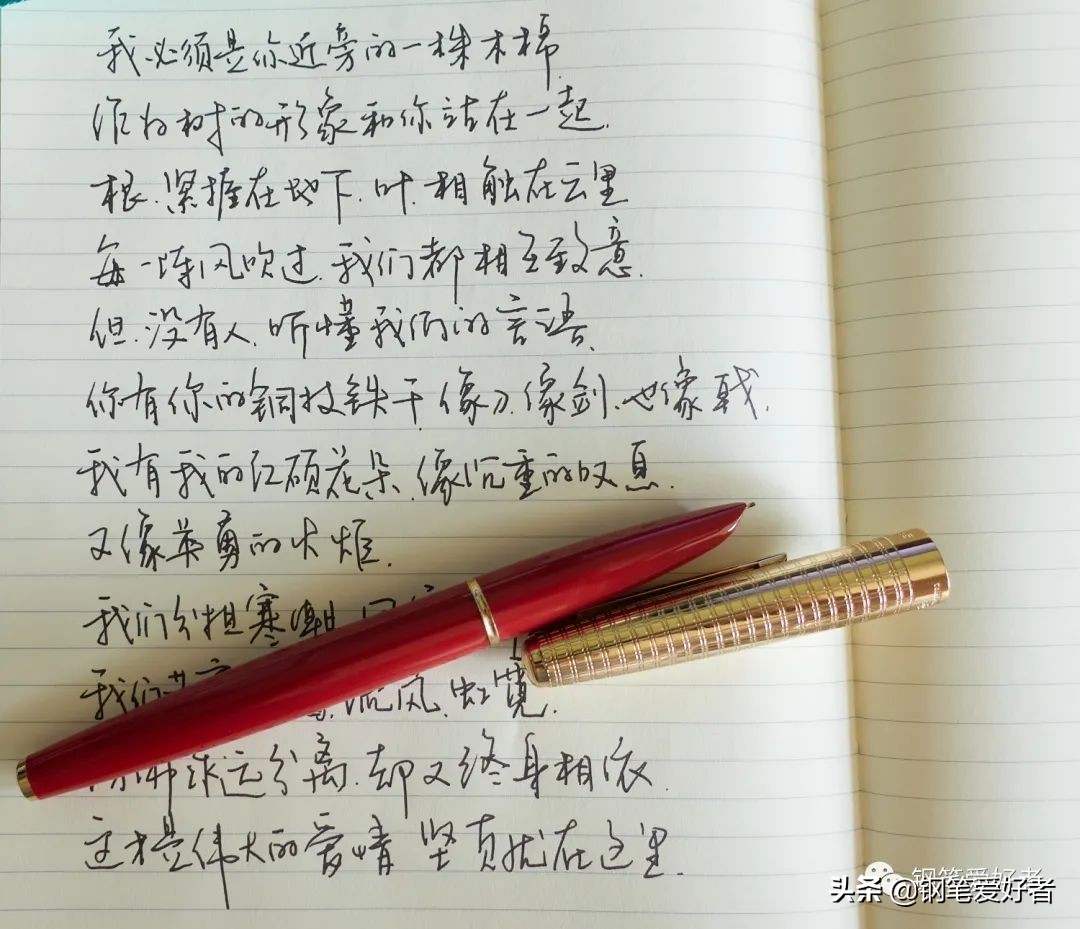 我必须是你近旁的一株木棉.
作为树的形象和你站在一起.
根.紧握在地下.叶.相触在云里
每一阵风吹过.我们都相互致意.
但.没有人.听懂我们的言语.
你有你的铜枝铁干.像刀.像剑.也像戟.
我有我的红硕花朵.像沉重的叹息.
又像英勇的火炬.
我们分担寒潮
我们 流风.虹霓.
永远分离.却又终身相依.
这才是伟大的爱情 坚贞就在这里.
钢笔爱好者
头条 @钢笔爱好者